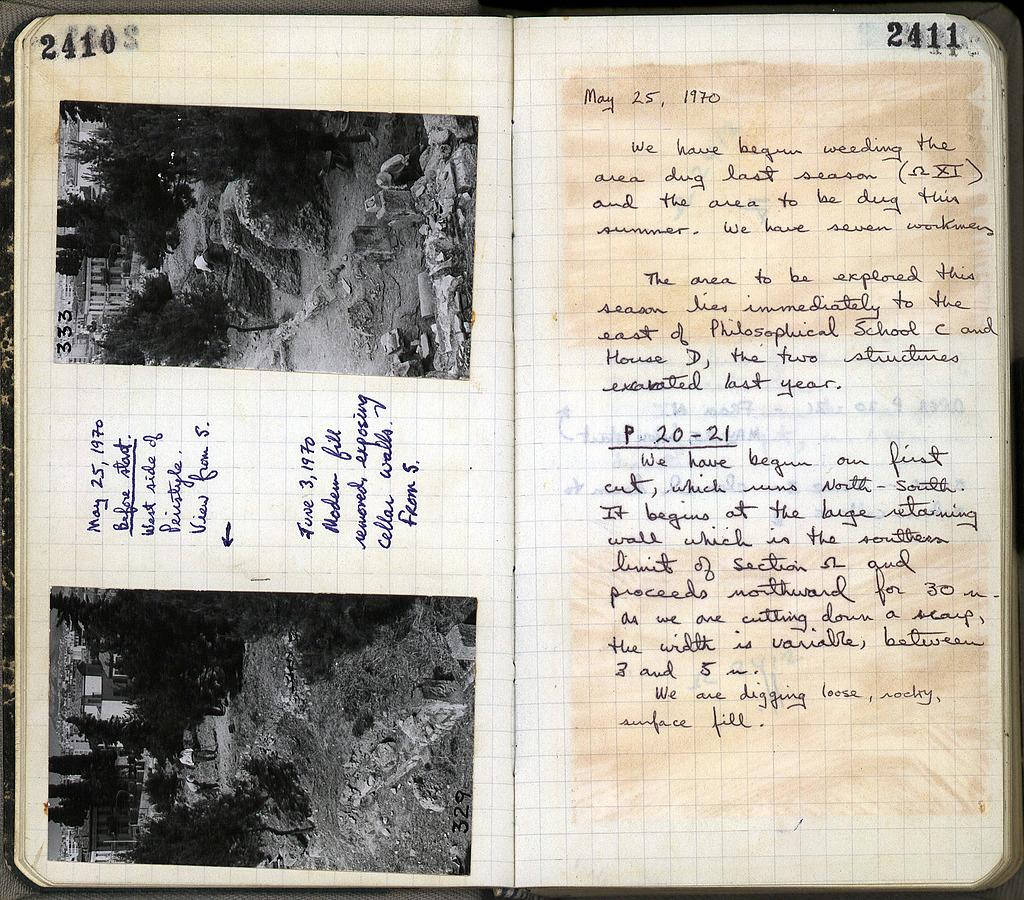 2410
333
May 25, 1970
Before start.
West side of
Peristyle.
View from S.
←
June 3, 1970
Modern fill
removed, exposing
cellar walls.
From S.
329
2411
May 25, 1970
We have begun weeding the
area dug last season (Ω XI)
and the area to be dug this
summer. We have seven workmen
The area to be explored this
season lies immediately to the
east of Philosophical School C and
House D, the two structures
excavated last year.
P 20-21
We have begun our first
cut, which runs North-South.
It begins at the large retaining
wall which is the southern
limit of section Ω and
proceeds northward for 30 m.
As we are cutting down a scarp,
the width is variable, between
3 and 5 m.
We are digging loose, rocky,
surface fill.